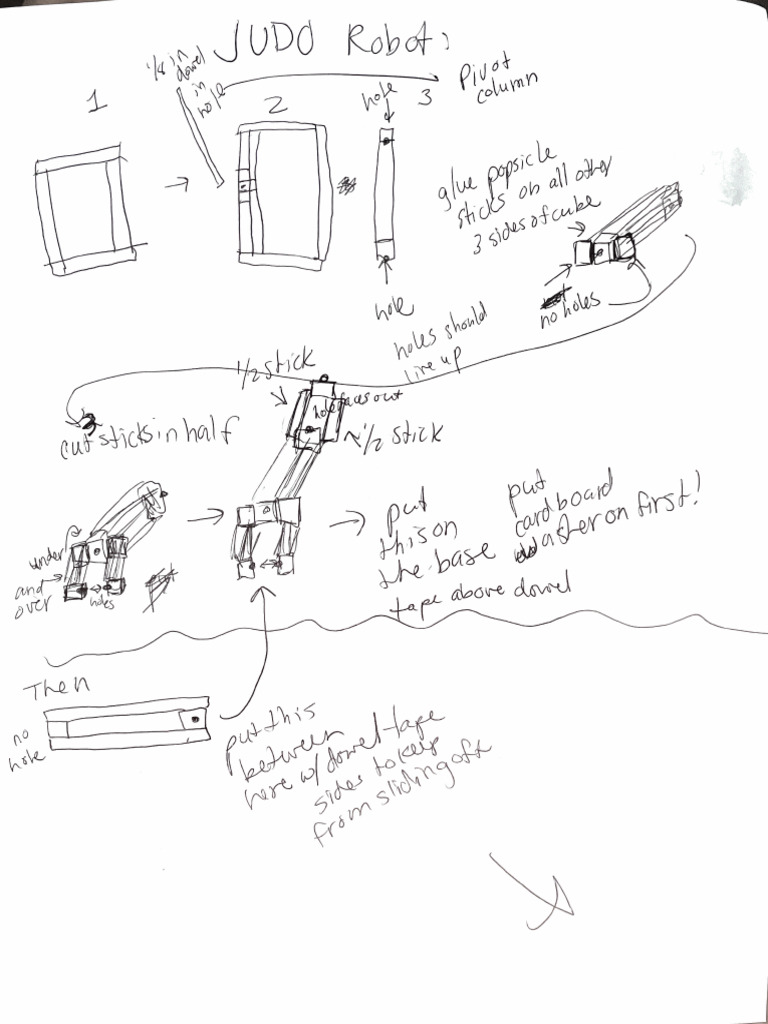 JUDO Robot:
1/8 in
dowel
in
hole
Pivot
column
1
2
hole
3
glue popsicle
sticks on all other
3 sides of cube
hole
no holes
holes should
line up
1/2 stick
hole faces out
cut sticks in half
~1/2 stick
under
and
over
holes
put
this on
the base
tape above dowel
put
cardboard
on first!
Then
no
hole
put this
between
here w/ dowel + tape
sides to keep
from sliding off